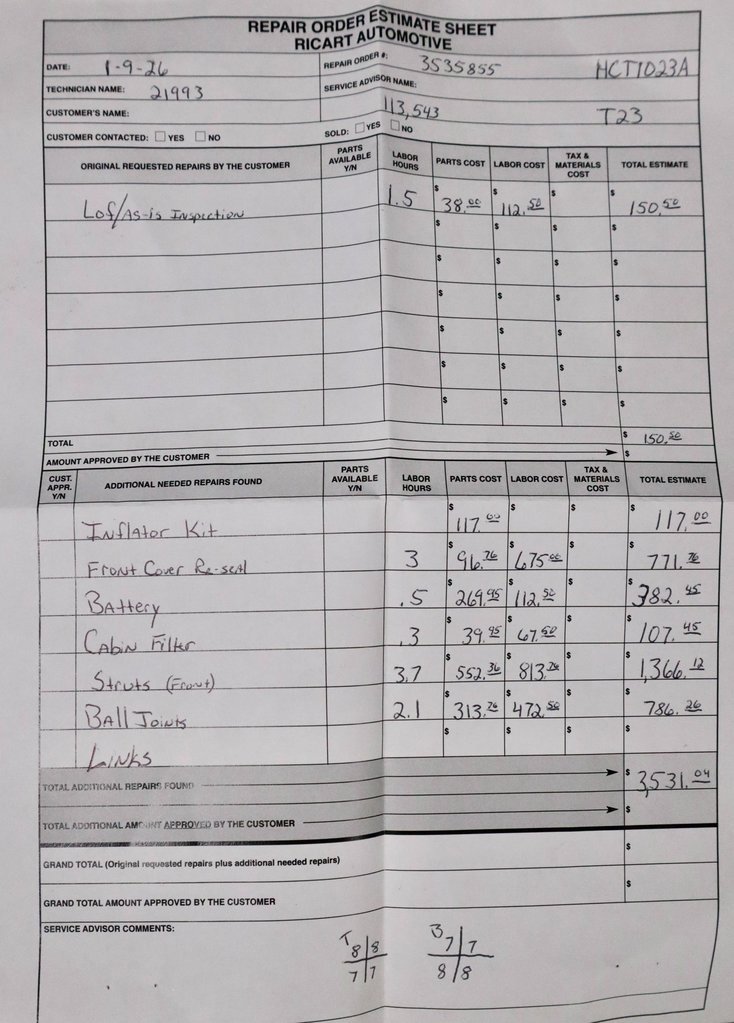 REPAIR ORDER ESTIMATE SHEET
RICART AUTOMOTIVE
DATE: 1-9-26 REPAIR ORDER #: 3535855 HCT1023A
TECHNICIAN NAME: 21993 SERVICE ADVISOR NAME:
CUSTOMER'S NAME: 113,543 T23
CUSTOMER CONTACTED: YES NO SOLD: YES NO
ORIGINAL REQUESTED REPAIRS BY THE CUSTOMER PARTS AVAILABLE Y/N LABOR HOURS PARTS COST LABOR COST TAX & MATERIALS COST TOTAL ESTIMATE
Lof/As-is Inspection 1.5 $38.00 $112.50 $ $150.50
$ $ $ $
$ $ $ $
$ $ $ $
$ $ $ $
$ $ $ $
$ $ $ $
TOTAL $150.50
AMOUNT APPROVED BY THE CUSTOMER $
CUST. APPR. Y/N ADDITIONAL NEEDED REPAIRS FOUND PARTS AVAILABLE Y/N LABOR HOURS PARTS COST LABOR COST TAX & MATERIALS COST TOTAL ESTIMATE
Inflator Kit $117.00 $ $ $117.00
Front Cover Re-seal 3 $96.76 $675.00 $ $771.76
Battery .5 $269.95 $112.50 $ $382.45
Cabin Filter .3 $39.95 $67.50 $ $107.45
Struts (Front) 3.7 $552.36 $813.76 $ $1,366.12
Ball Joints 2.1 $313.76 $472.50 $ $786.26
Links $ $ $ $
TOTAL ADDITIONAL REPAIRS FOUND $3,531.04
TOTAL ADDITIONAL AMOUNT APPROVED BY THE CUSTOMER $
GRAND TOTAL (Original requested repairs plus additional needed repairs) $
GRAND TOTAL AMOUNT APPROVED BY THE CUSTOMER $
SERVICE ADVISOR COMMENTS:
T 8 8 B 7 7
7 7 8 8